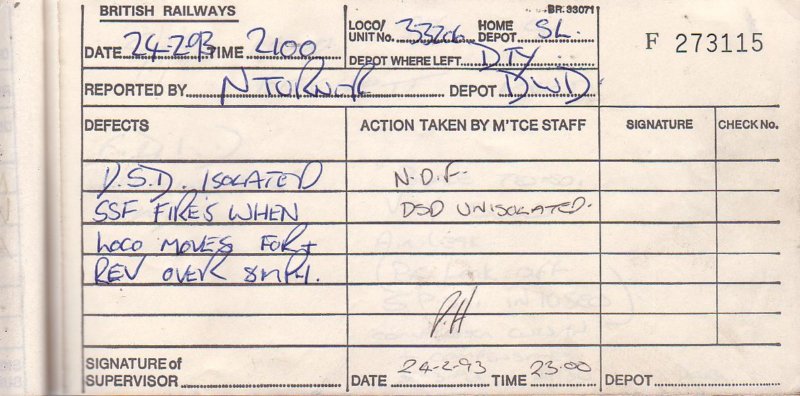 BRITISH RAILWAYS
BR. 33071
DATE 24-2-93 TIME 2100
LOCO/UNIT No. 33206 HOME DEPOT SL.
F 273115
DEPOT WHERE LEFT DTY
REPORTED BY N TURNER DEPOT DWD
DEFECTS ACTION TAKEN BY M'TCE STAFF SIGNATURE CHECK No.
D.S.D. ISOLATED N.D.F.
SSF FIRE'S WHEN DSD UNISOLATED.
LOCO MOVES FOR +
REV OVER 8MPH.
P.H
SIGNATURE of
SUPERVISOR DATE 24-2-93 TIME 23.00 DEPOT